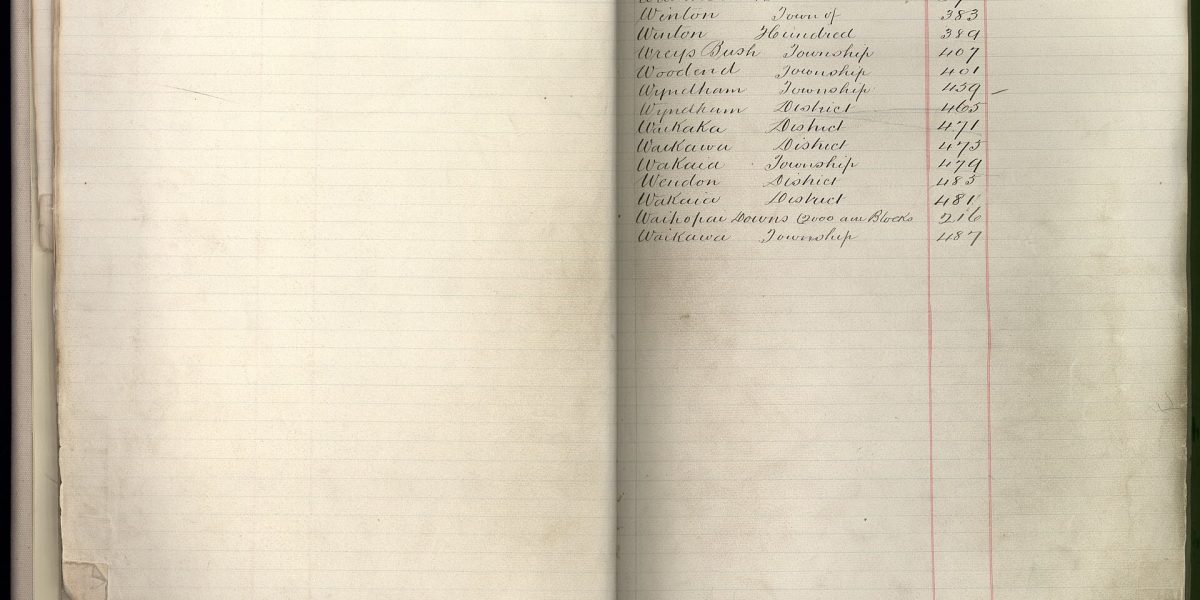 Winton Town of 383
Winton Hundred 389
Wreys Bush Township 407
Woodend Township 401
Wyndham Township 459
Wyndham District 465
Waikaka District 471
Waikawa District 475
Wakaia Township 479
Wendon District 485
Wakaia District 481
Waihopai Downs (2000 acre Blocks 216
Waikawa Township 487